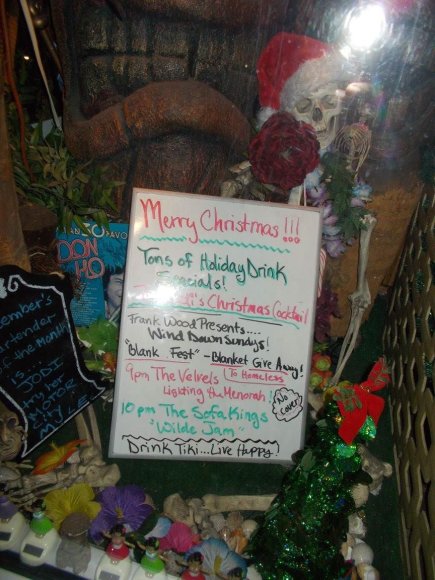 Merry Christmas!!!
Tons of Holiday Drink
Specials!
Christmas Cocktail
Frank Wood Presents....
Wind Down Sundys!
"Blank Fest" - Blanket Give Away!
To Homeless
9pm The Velvels
Lighting the Menorah!
No cover!
10 pm The Sofa Kings
"Wilde Jam"
Drink Tiki... Live Happy!
DON
HO
ember's
artender
of the month
is
JODY